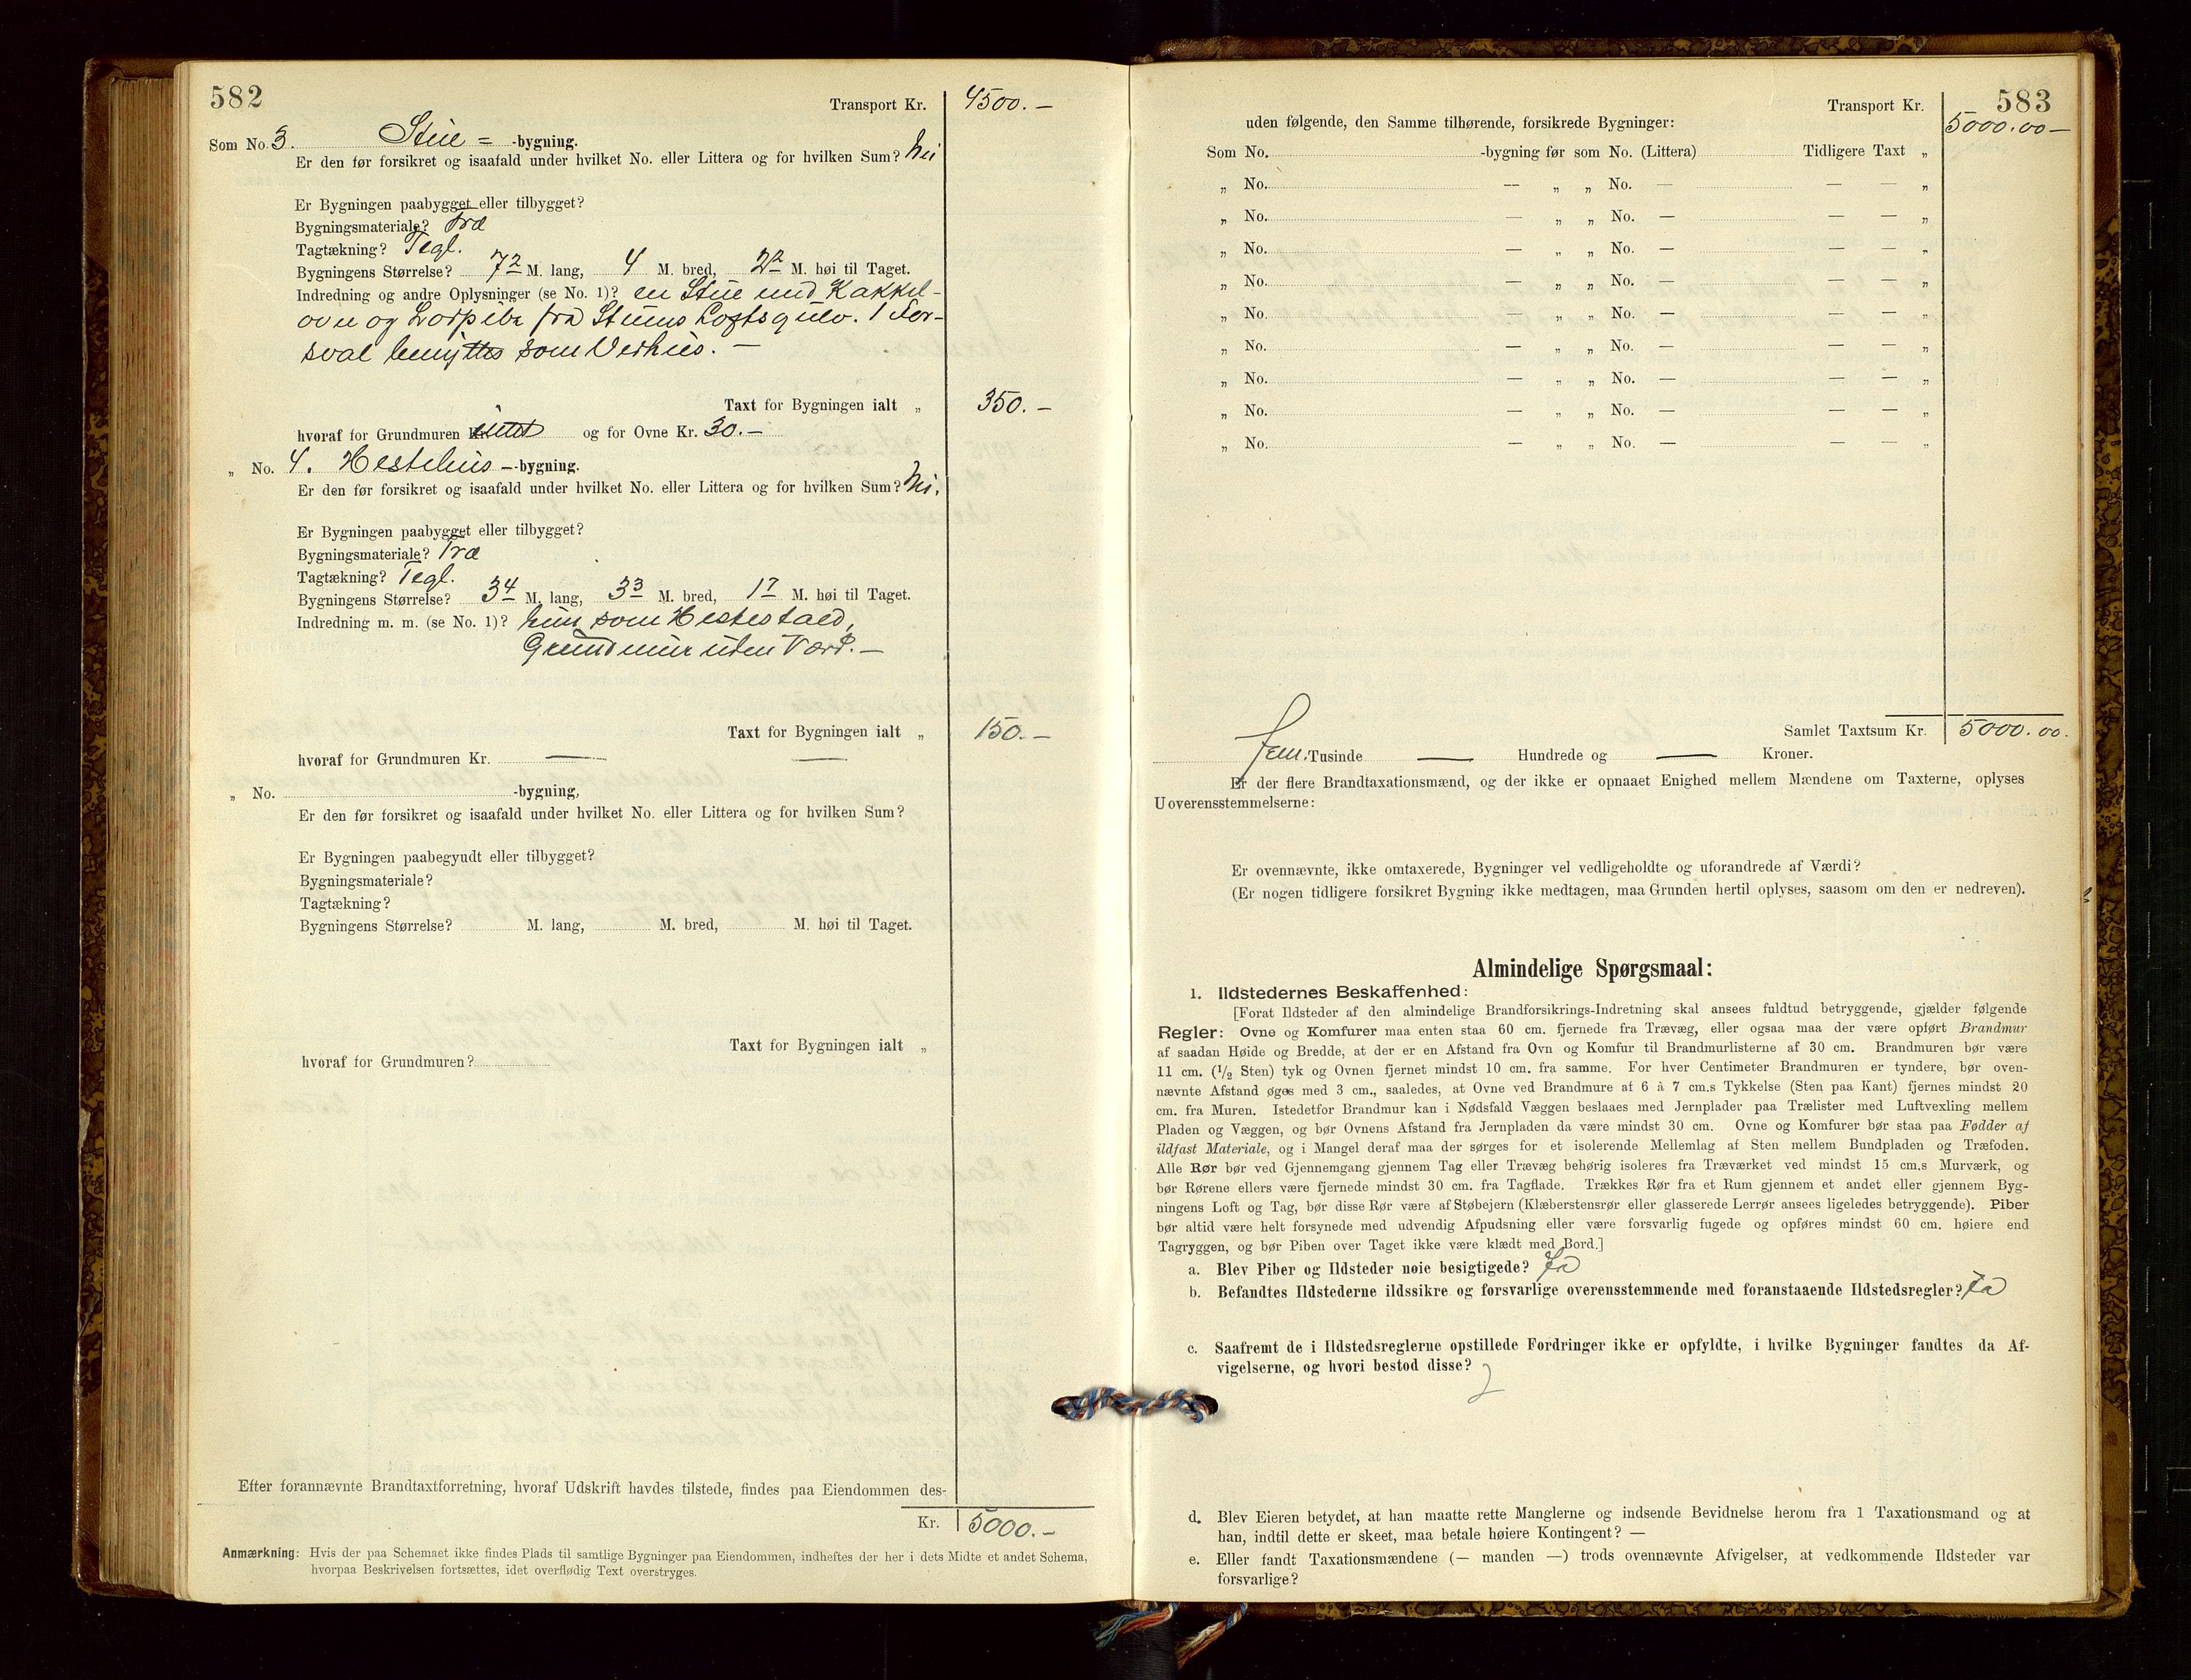 582
Transport Kr. 4500.—
Som No. 3. Stue = -bygning.
Er den før forsikret og isaafald under hvilket No. eller Littera og for hvilken Sum? Nei
Er Bygningen paabygget eller tilbygget?
Bygningsmateriale? Træ
Tagtækning? Tegl.
Bygningens Størrelse? 7 2 M. lang, 4 M. bred, 2 2 M. høi til Taget.
Indredning og andre Oplysninger (se No. 1)? en Stue med Kakkel-
ovn og Lorpibe fra Stuens Loftsgulv. 1 For-
sval benyttes som Vedhus. —
Taxt for Bygningen ialt „ 350.—
hvoraf for Grundmuren Kr. intet og for Ovne Kr. 30.—
„ No. 4. Hestehus — -bygning.
Er den før forsikret og isaafald under hvilket No. eller Littera og for hvilken Sum? Nei.
Er Bygningen paabygget eller tilbygget?
Bygningsmateriale? Træ
Tagtækning? Tegl.
Bygningens Størrelse? 3 4 M. lang, 3 3 M. bred, 1 7 M. høi til Taget.
Indredning m. m. (se No. 1)? kun som Hestestald,
Grundmur uden Værd. —
Taxt for Bygningen ialt „ 150.—
hvoraf for Grundmuren Kr. — —
„ No. -bygning,
Er den før forsikret og isaafald under hvilket No. eller Littera og for hvilken Sum?
Er Bygningen paabegyudt eller tilbygget?
Bygningsmateriale?
Tagtækning?
Bygningens Størrelse? M. lang, M. bred, M. høi til Taget.
Taxt for Bygningen ialt „
hvoraf for Grundmuren?
Efter forannævnte Brandtaxtforretning, hvoraf Udskrift havdes tilstede, findes paa Eiendommen des-
Kr. 5000.—
Anmærkning: Hvis der paa Schemaet ikke findes Plads til samtlige Bygninger paa Eiendommen, indheftes der her i dets Midte et andet Schema,
hvorpaa Beskrivelsen fortsættes, idet overflødig Text overstryges.
583
Transport Kr. 5000.00—
uden følgende, den Samme tilhørende, forsikrede Bygninger:
Som No. -bygning før som No. (Littera) Tidligere Taxt „
„ No. — „ „ No. — — — „
„ No. — „ „ No. — — — „
„ No. — „ „ No. — — — „
„ No. — „ „ No. — — — „
„ No. — „ „ No. — — — „
„ No. — „ „ No. — — — „
„ No. — „ „ No. — — — „
„ No. — „ „ No. — — — „
„ No. — „ „ No. — — — „
Samlet Taxtsum Kr. 5000.00.
Fem. Tusinde — Hundrede og — Kroner.
Er der flere Brandtaxationsmænd, og der ikke er opnaaet Enighed mellem Mændene om Taxterne, oplyses
Uoverensstemmelserne:
Er ovennævnte, ikke omtaxerede, Bygninger vel vedligeholdte og uforandrede af Værdi?
(Er nogen tidligere forsikret Bygning ikke medtagen, maa Grunden hertil oplyses, saasom om den er nedreven).
Almindelige Spørgsmaal:
1. Ildstedernes Beskaffenhed:
[Forat Ildsteder af den almindelige Brandforsikrings-Indretning skal ansees fuldtud betryggende, gjælder følgende
Regler: Ovne og Komfurer maa enten staa 60 cm. fjernede fra Trævæg, eller ogsaa maa der være opført Brandmur
af saadan Høide og Bredde, at der er en Afstand fra Ovn og Komfur til Brandmurlisterne af 30 cm. Brandmuren bør være
11 cm. (1/2 Sten) tyk og Ovnen fjernet mindst 10 cm. fra samme. For hver Centimeter Brandmuren er tyndere, bør oven-
nævnte Afstand øges med 3 cm., saaledes, at Ovne ved Brandmure af 6 à 7 cm.s Tykkelse (Sten paa Kant) fjernes mindst 20
cm. fra Muren. Istedetfor Brandmur kan i Nødsfald Væggen beslaaes med Jernplader paa Trælister med Luftvexling mellem
Pladen og Væggen, og bør Ovnens Afstand fra Jernpladen da være mindst 30 cm. Ovne og Komfurer bør staa paa Fødder af
ildfast Materiale, og i Mangel deraf maa der sørges for et isolerende Mellemlag af Sten mellem Bundpladen og Træfoden.
Alle Rør bør ved Gjennemgang gjennem Tag eller Trævæg behørig isoleres fra Træværket ved mindst 15 cm.s Murværk, og
bør Rørene ellers være fjernede mindst 30 cm. fra Tagflade. Trækkes Rør fra et Rum gjennem et andet eller gjennem Byg-
ningens Loft og Tag, bør disse Rør være af Støbejern (Klæberstensrør eller glasserede Lerrør ansees ligeledes betryggende). Piber
bør altid være helt forsynede med udvendig Afpudsning eller være forsvarlig fugede og opføres mindst 60 cm. høiere end
Tagryggen, og bør Piben over Taget ikke være klædt med Bord.]
a. Blev Piber og Ildsteder nøie besigtigede? Ja
b. Befandtes Ildstederne ildssikre og forsvarlige overensstemmende med foranstaaende Ildstedsregler? Ja
c. Saafremt de i Ildstedsreglerne opstillede Fordringer ikke er opfyldte, i hvilke Bygninger fandtes da Af-
vigelserne, og hvori bestod disse?
d. Blev Eieren betydet, at han maatte rette Manglerne og indsende Bevidnelse herom fra 1 Taxationsmand og at
han, indtil dette er skeet, maa betale høiere Kontingent? —
e. Eller fandt Taxationsmændene (— manden —) trods ovennævnte Afvigelser, at vedkommende Ildsteder var
forsvarlige?